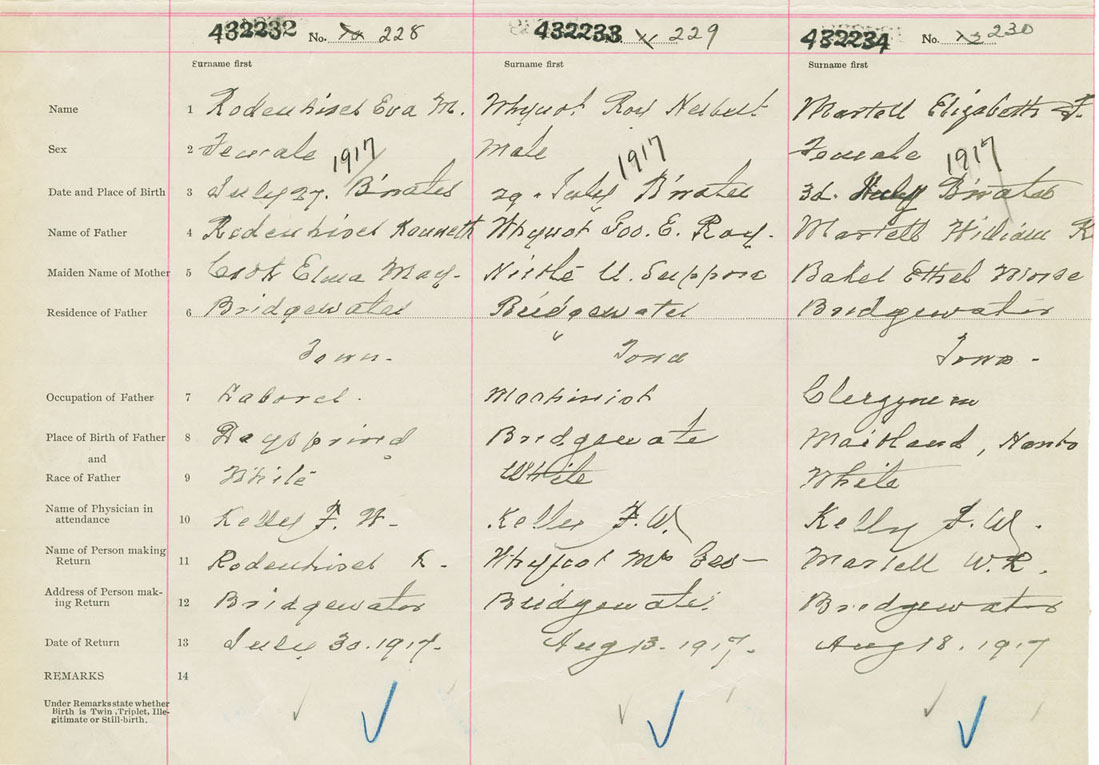 432232 No. 228 432233 229 432234 No. 230
Surname first Surname first Surname first
Name 1 Rodenhiser Eva M. Whynot Roy Herbert Martell Elizabeth F.
Sex 2 Female 1917 Male 1917 Female 1917
Date and Place of Birth 3 July 27. B'water 29. July B'water 3d. B'water
Name of Father 4 Rodenhiser Kenneth Whynot Geo. E. Roy. Martell William R
Maiden Name of Mother 5 Cook Elma May. U. Baker Ethel
Residence of Father 6 Bridgewater Bridgewater Bridgewater
Town. Town -
Occupation of Father 7 Laborer. Machinist Clergyman
Place of Birth of Father 8 Bridgewate Maitland, Hants
and
Race of Father 9 White White White
Name of Physician in
attendance 10 Kelly F. W. Kelly F. W. Kelly F. W.
Name of Person making
Return 11 Rodenhiser K. Whynot Mrs Geo Martell W.R.
Address of Person mak-
ing Return 12 Bridgewater Bridgewate. Bridgewater
Date of Return 13 July 30. 1917. Aug 13. 1917. Aug 18. 1917
REMARKS 14
Under Remarks state whether
Birth is Twin, Triplet, Ille-
gitimate or Still-birth.